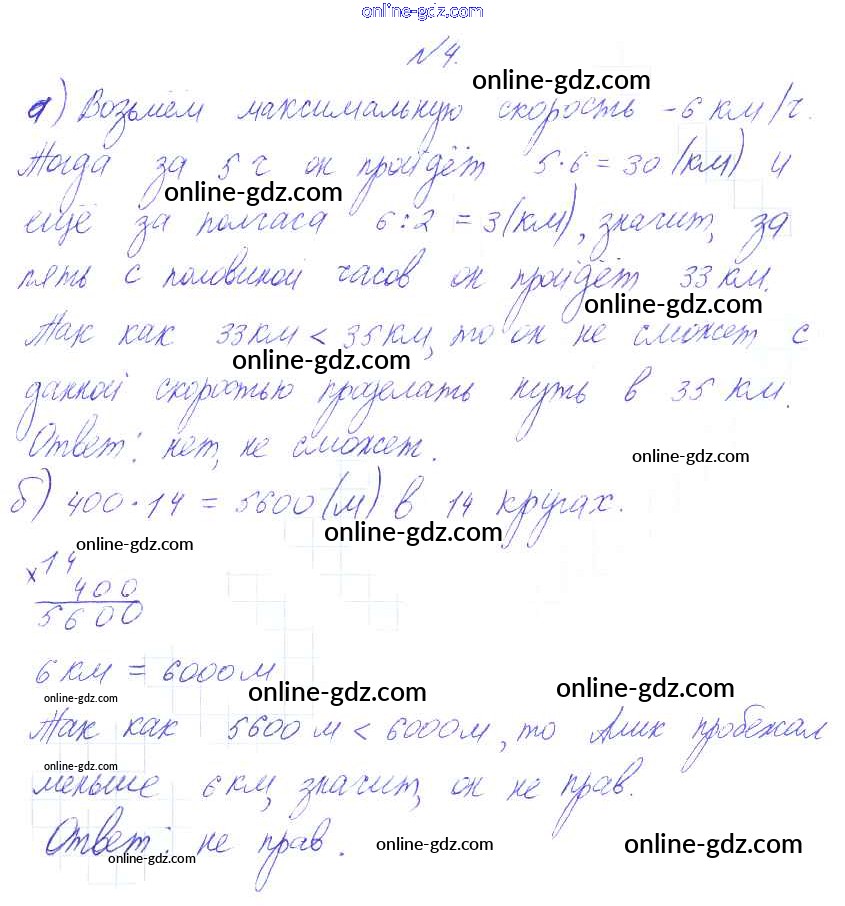 online-gdz.com
№4.
online-gdz.com
а) Возьмём максимальную скорость – 6 км/ч.
Тогда за 5 ч он пройдёт 5·6=30 (км) и
online-gdz.com
ещё за полчаса 6:2=3(км), значит, за
пять с половиной часов он пройдёт 33 км.
online-gdz.com
Так как 33 км < 35 км, то он не сможет с
online-gdz.com
данной скоростью проделать путь в 35 км.
Ответ: нет, не сможет.
online-gdz.com
б) 400·14 = 5600 (м) в 14 кругах.
online-gdz.com
online-gdz.com
×14
400
5600
6 км = 6000м
online-gdz.com
online-gdz.com
online-gdz.com
Так как 5600 м < 6000м, то Алик пробежал
online-gdz.com
меньше 6 км, значит, он не прав.
Ответ: не прав.
online-gdz.com
online-gdz.com
online-gdz.com